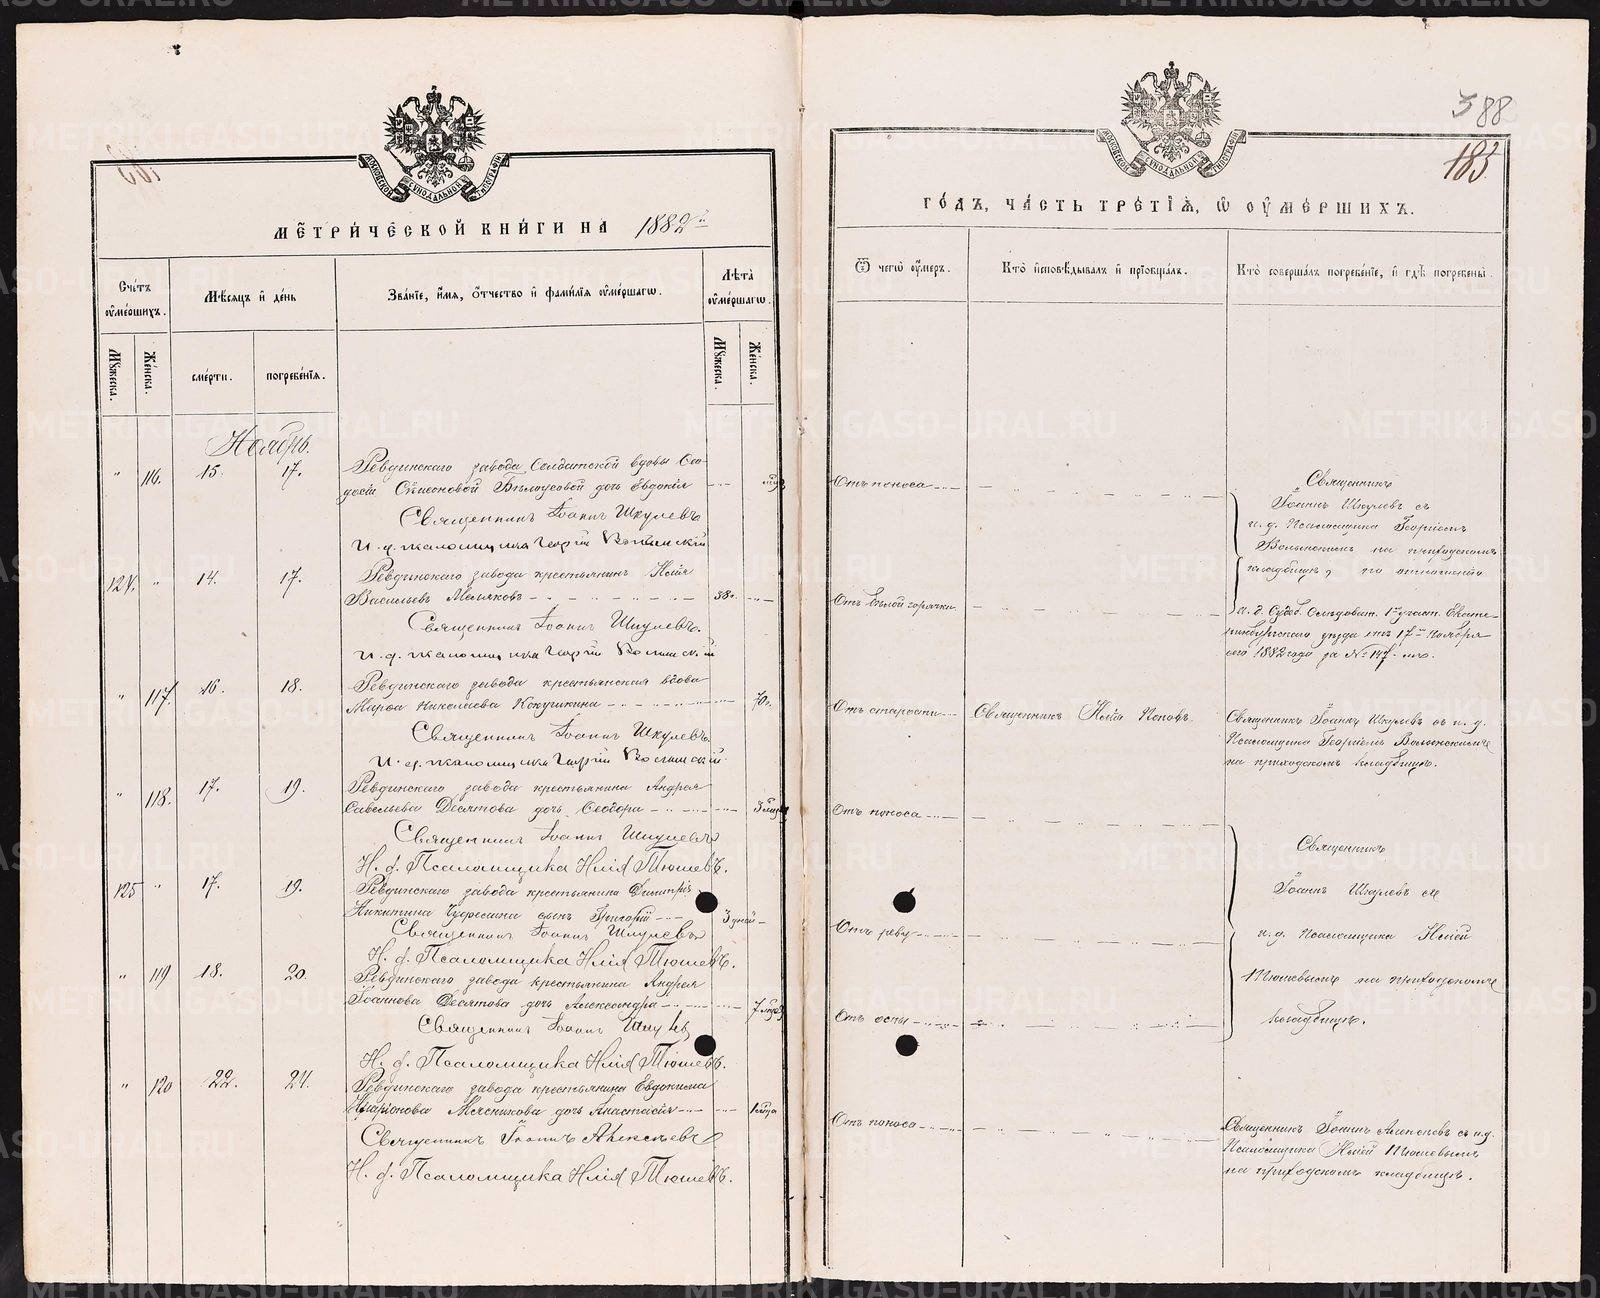 388
183.
МОСКОВСКОЙ СѴНОДАЛЬНОЙ ТИПОГРАФІИ
МЕТРИЧЕСКОЙ КНИГИ НА 1882 й
Счетъ оумершихъ.
Месяцъ и день
Званіе, имя, отчество и фамилія оумершаго.
Лета оумершаго.
Мужеска.
Женска.
смерти.
погребенія.
Мужеска.
Женска.
Ноябрь.
" 116. 15. 17. Ревдинскаго завода Солдатской вдовы Ѳео-
досіи Симеоновой Белоусовой дочь Евдокія
Священникъ Іоаннъ Шкулевъ
И. д. псаломщика Георгій Волынскій
124. " 14. 17. Ревдинскаго завода крестьянинъ Илія
Васильевъ Мелчковъ 38.
Священникъ Іоаннъ Шкулевъ.
И. д. псаломщика Георгій Волынскій
" 117. 16. 18. Ревдинскаго завода крестьянская вдова
Марѳа Николаева Кокушкина 70.
Священникъ Іоаннъ Шкулевъ.
И. д. псаломщика Георгій Волынскій
" 118. 17. 19. Ревдинскаго завода крестьянина Андрея
Савельева Десятова дочь Ѳеодора 3 мца
Священникъ Іоаннъ Шкулевъ
И. д. Псаломщика Илія Тюшевъ.
125 " 17. 19. Ревдинскаго завода крестьянина Димитрія
Никитина сынъ Григорій 3 дней
Священникъ Іоаннъ Шкулевъ
И. д. Псаломщика Илія Тюшевъ.
" 119 18. 20. Ревдинскаго завода крестьянина Андрея
Іоаннова Десятова дочь Александра 7 мцев
Священникъ Іоаннъ
И. д. Псаломщика Илія Тюшевъ.
" 120 22. 24. Ревдинскаго завода крестьянина Евдокима
Иларіонова Мясникова дочь Анастасія 1 мца
Священникъ Іоаннъ
И. д. Псаломщика Илія Тюшевъ.
МОСКОВСКОЙ СѴНОДАЛЬНОЙ ТИПОГРАФІИ
ГОДЪ, ЧАСТЬ ТРЕТІЯ, Ѡ ОУМЕРШИХЪ.
Ѿ чего оумеръ.
Кто исповѣдывалъ и пріобщалъ.
Кто совершалъ погребеніе, и гдѣ погребены.
Отъ поноса
Священникъ
Іоаннъ Шкулевъ съ
и. д. Псаломщика Георгіемъ
Волынскимъ на приходскомъ
кладбищѣ, по отношенію
Отъ бѣлой горячки
и. д. Судеб. Следоват. 1го участ. Екате-
ринбургскаго уезда отъ 17го Ноября
сего 1882 года за № 147.
Отъ старости Священникъ Илія Поповъ.
Священникъ Іоаннъ Шкулевъ съ и. д.
Псаломщика Георгіемъ Волынскимъ
на приходскомъ кладбищѣ.
Отъ поноса
Священникъ
Іоаннъ Шкулевъ съ
Отъ реву
и. д. Псаломщика Иліей
Тюшевымъ на приходскомъ
Отъ оспы
кладбищѣ.
Отъ поноса
Священникъ Іоаннъ съ и.д.
Псаломщика Иліей Тюшевымъ
на приходскомъ кладбищѣ.
METRIKI.GASO-URAL.RU